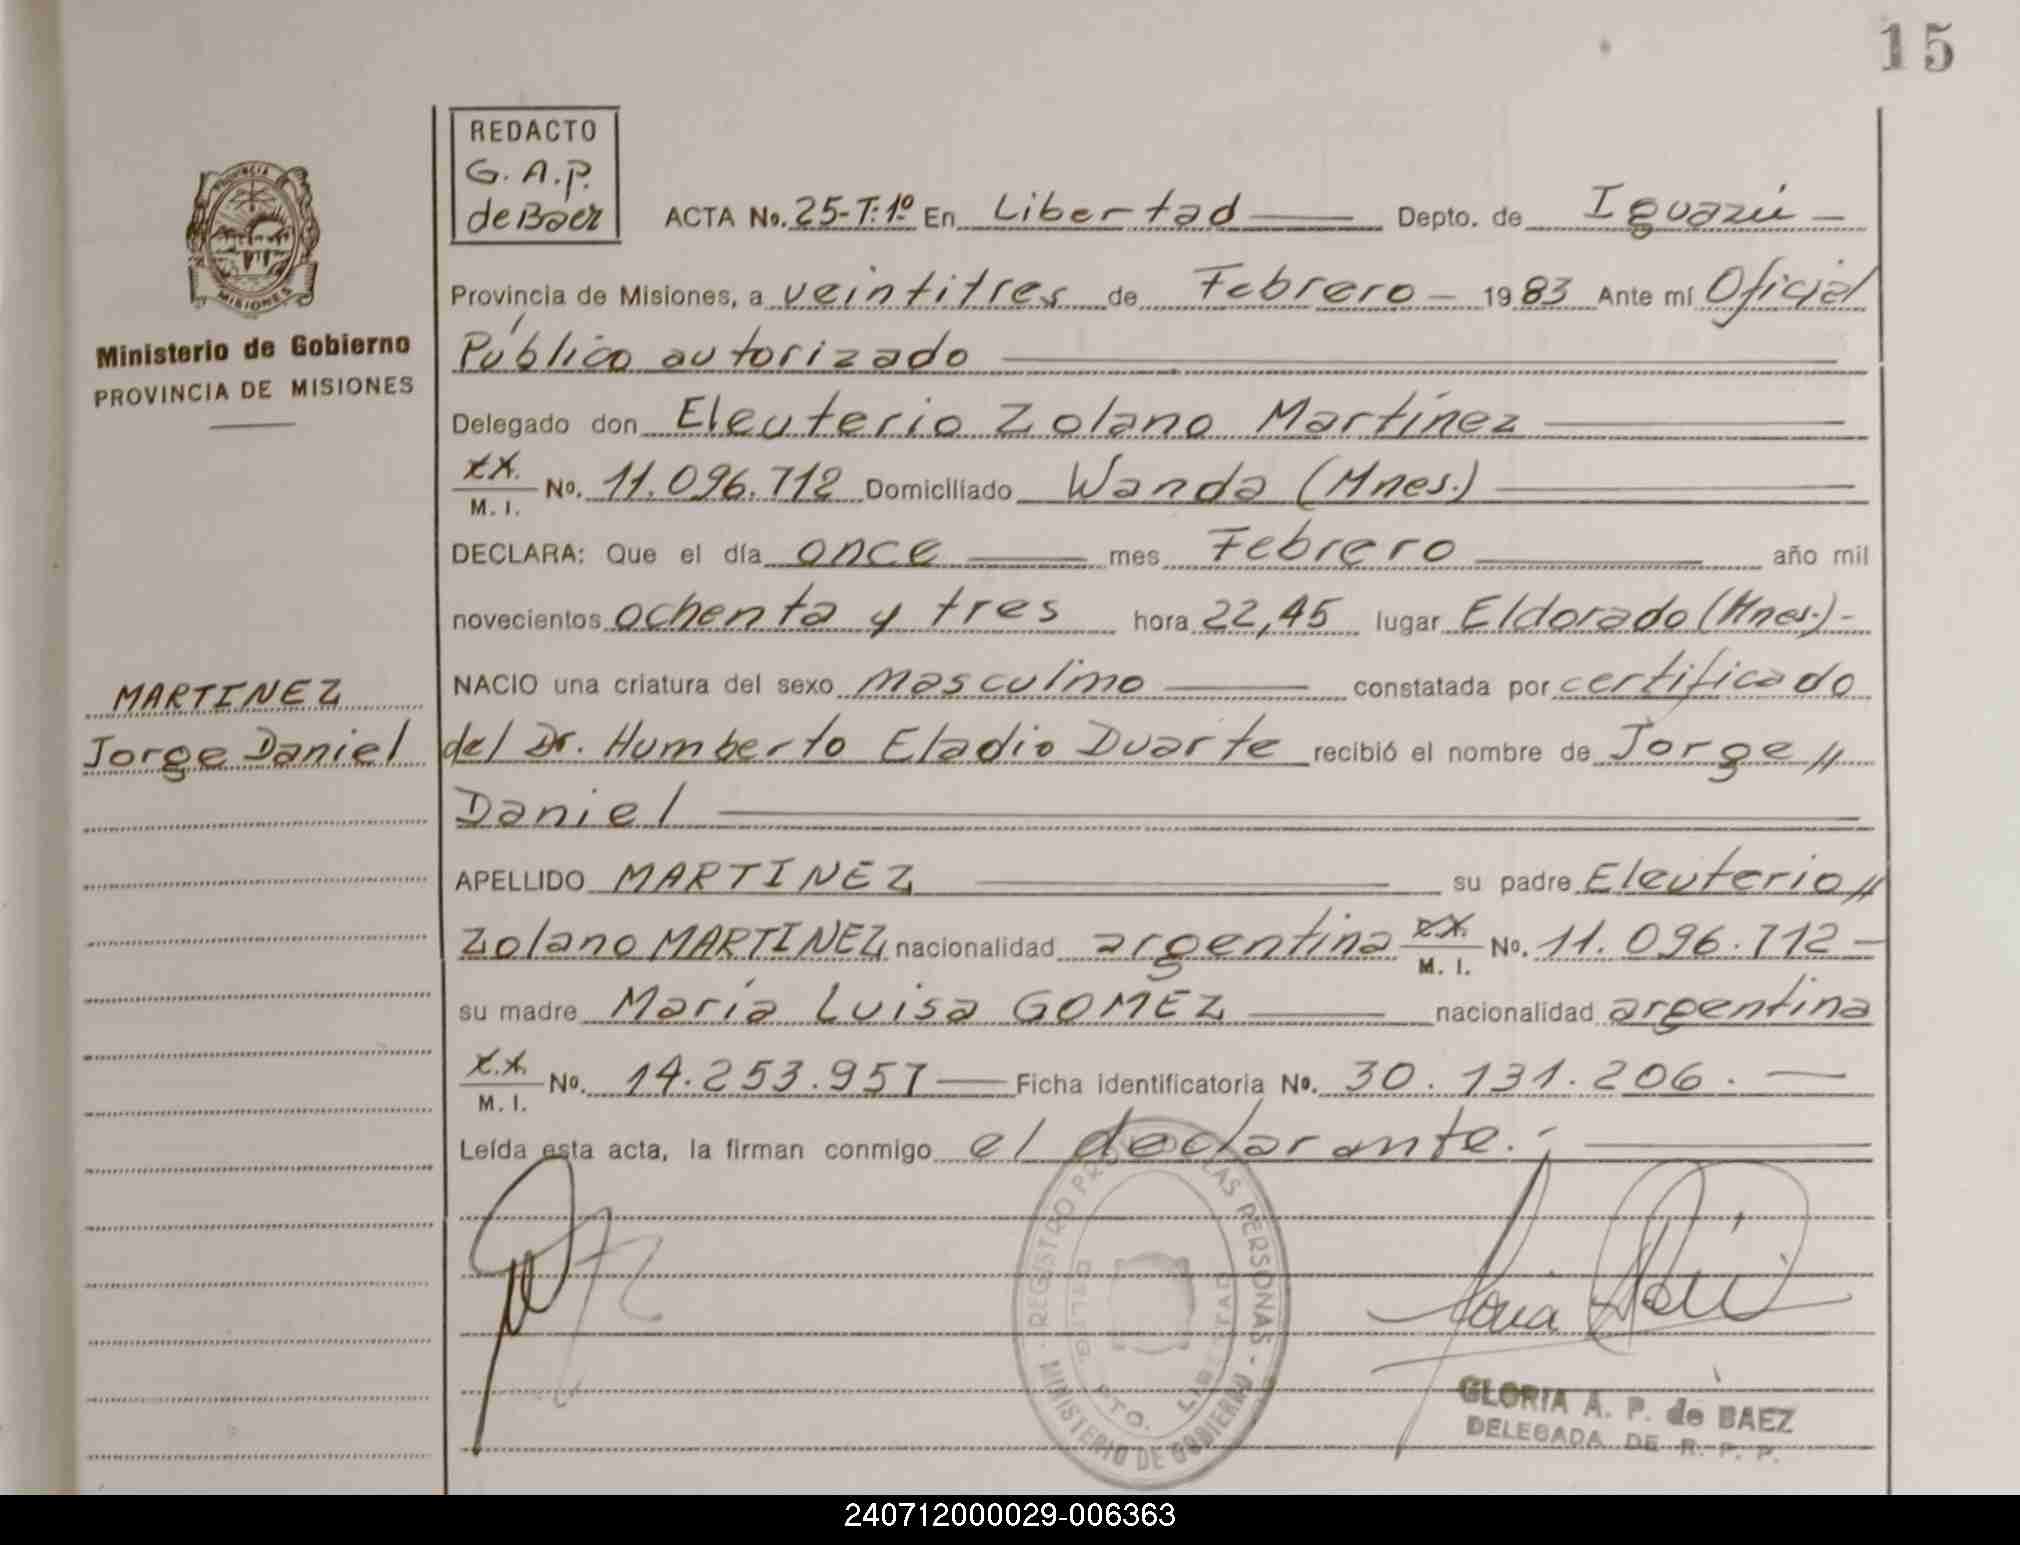 15
REDACTO
G. A. P.
de Baez
ACTA No. 25-T:1º En Libertad Depto. de Iguazú
Provincia de Misiones, a veintitres de Febrero 1983 Ante mí Oficial
Público autorizado
Delegado don Eleuterio Zolano Martínez
M. I. No. 11.096.712 Domiciliado Wanda (Mnes.)
DECLARA: Que el día once mes Febrero año mil
novecientos ochenta y tres hora 22,45 lugar Eldorado (Mnes.)-
NACIO una criatura del sexo masculino constatada por certificado
del Dr. Humberto Eladio Duarte recibió el nombre de Jorge //
Daniel
APELLIDO MARTINEZ su padre Eleuterio //
Zolano MARTINEZ nacionalidad argentina M. I. No. 11.096.712-
su madre María Luisa GOMEZ nacionalidad argentina
M. I. No. 14.253.957 Ficha identificatoria No. 30.131.206.
Leída esta acta, la firman conmigo el declarante.-
PROVINCIA
MISIONES
Ministerio de Gobierno
PROVINCIA DE MISIONES
MARTINEZ
Jorge Daniel
REGISTRO LAS PERSONAS
MINISTERIO DE GOBIERNO
PTO. LIBERTAD
GLORIA A. P. de BAEZ
DELEGADA DE R. P. P.
240712000029-006363